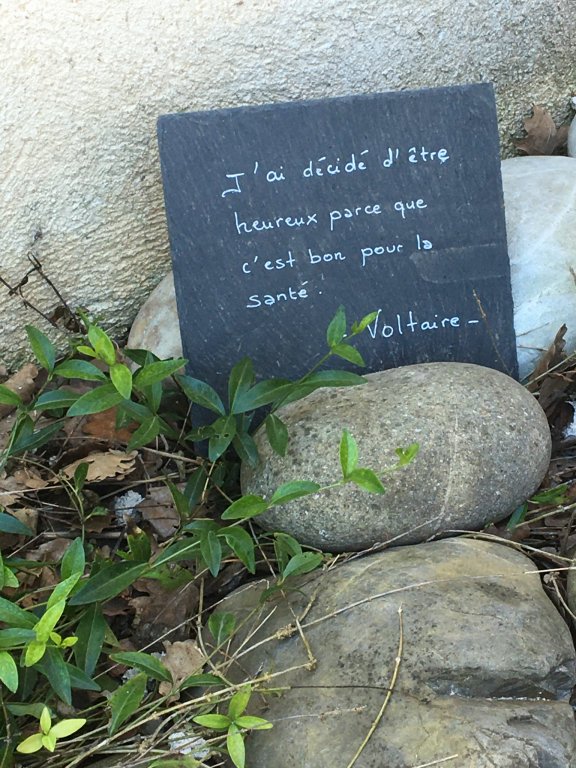 J'ai décidé d'être
heureux parce que
c'est bon pour la
santé.
Voltaire -